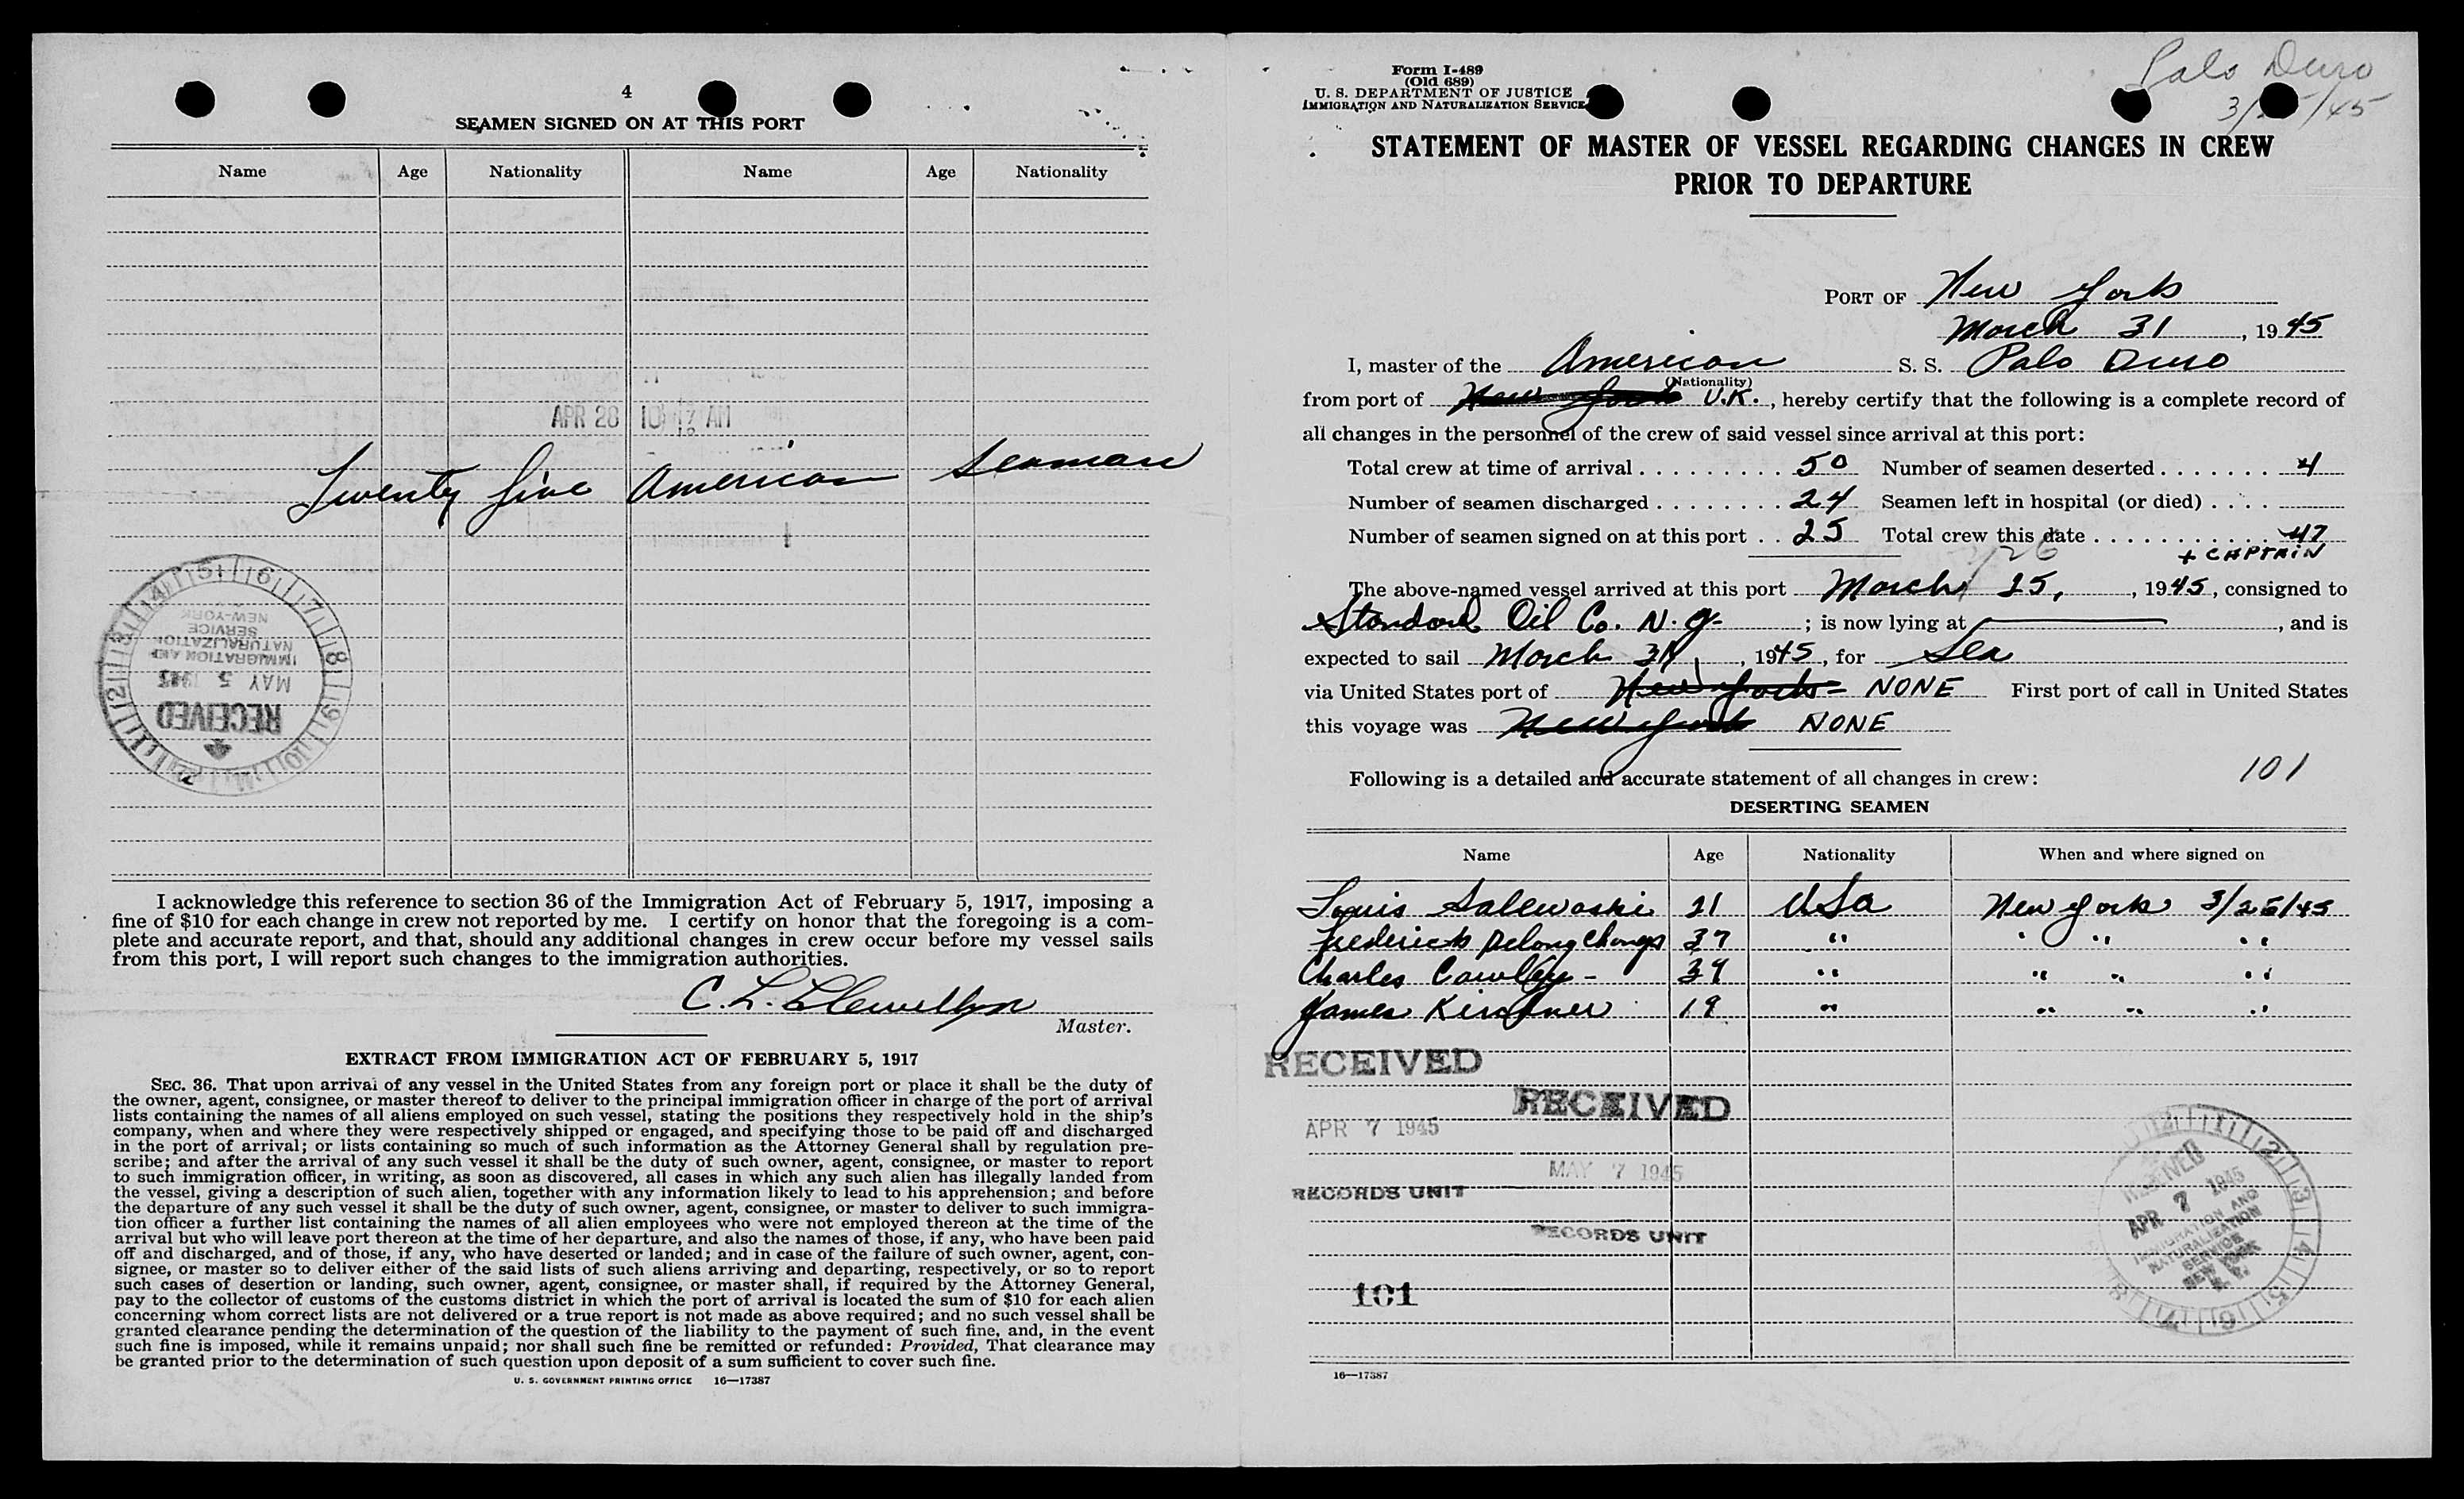 4
SEAMEN SIGNED ON AT THIS PORT
Name Age Nationality Name Age Nationality
APR 28 10 17 AM
Twenty five American Seaman
5 6 7 8 9 10 11 12 13 14
NEW-YORK
SERVICE
NATURALIZATION
IMMIGRATION AND
MAY 5 1945
RECEIVED
I acknowledge this reference to section 36 of the Immigration Act of February 5, 1917, imposing a
fine of $10 for each change in crew not reported by me. I certify on honor that the foregoing is a com-
plete and accurate report, and that, should any additional changes in crew occur before my vessel sails
from this port, I will report such changes to the immigration authorities.
C. L. Llewellyn
Master.
EXTRACT FROM IMMIGRATION ACT OF FEBRUARY 5, 1917
SEC. 36. That upon arrival of any vessel in the United States from any foreign port or place it shall be the duty of
the owner, agent, consignee, or master thereof to deliver to the principal immigration officer in charge of the port of arrival
lists containing the names of all aliens employed on such vessel, stating the positions they respectively hold in the ship's
company, when and where they were respectively shipped or engaged, and specifying those to be paid off and discharged
in the port of arrival; or lists containing so much of such information as the Attorney General shall by regulation pre-
scribe; and after the arrival of any such vessel it shall be the duty of such owner, agent, consignee, or master to report
to such immigration officer, in writing, as soon as discovered, all cases in which any such alien has illegally landed from
the vessel, giving a description of such alien, together with any information likely to lead to his apprehension; and before
the departure of any such vessel it shall be the duty of such owner, agent, consignee, or master to deliver to such immigra-
tion officer a further list containing the names of all alien employees who were not employed thereon at the time of the
arrival but who will leave port thereon at the time of her departure, and also the names of those, if any, who have been paid
off and discharged, and of those, if any, who have deserted or landed; and in case of the failure of such owner, agent, con-
signee, or master so to deliver either of the said lists of such aliens arriving and departing, respectively, or so to report
such cases of desertion or landing, such owner, agent, consignee, or master shall, if required by the Attorney General,
pay to the collector of customs of the customs district in which the port of arrival is located the sum of $10 for each alien
concerning whom correct lists are not delivered or a true report is not made as above required; and no such vessel shall be
granted clearance pending the determination of the question of the liability to the payment of such fine, and, in the event
such fine is imposed, while it remains unpaid; nor shall such fine be remitted or refunded: Provided, That clearance may
be granted prior to the determination of such question upon deposit of a sum sufficient to cover such fine.
U. S. GOVERNMENT PRINTING OFFICE 16—17387
Form I-489
(Old 689)
U. S. DEPARTMENT OF JUSTICE
IMMIGRATION AND NATURALIZATION SERVICE
Palo Duro
3/25/45
STATEMENT OF MASTER OF VESSEL REGARDING CHANGES IN CREW
PRIOR TO DEPARTURE
PORT OF New York
March 31, 1945
I, master of the American S. S. Palo Duro
(Nationality)
from port of New York U.K., hereby certify that the following is a complete record of
all changes in the personnel of the crew of said vessel since arrival at this port:
Total crew at time of arrival 50 Number of seamen deserted 4
Number of seamen discharged 24 Seamen left in hospital (or died)
Number of seamen signed on at this port 25 Total crew this date 47
26 + CAPTAIN
The above-named vessel arrived at this port March 25, 1945, consigned to
Standard Oil Co. N. J. ; is now lying at , and is
expected to sail March 31, 1945, for Sea
via United States port of New York NONE First port of call in United States
this voyage was New York NONE
Following is a detailed and accurate statement of all changes in crew: 101
DESERTING SEAMEN
Name Age Nationality When and where signed on
Louis Salewaski 21 USA New York 3/25/45
Frederick Delong Champs 37 " " " "
Charles Cawley - 39 " " " "
James Kirchner 19 " " " "
RECEIVED
RECEIVED
APR 7 1945
MAY 7 1945
RECORDS UNIT
RECORDS UNIT
RECEIVED
APR 7 1945
IMMIGRATION AND
NATURALIZATION
SERVICE
NEW YORK
N. Y.
101
16—17387